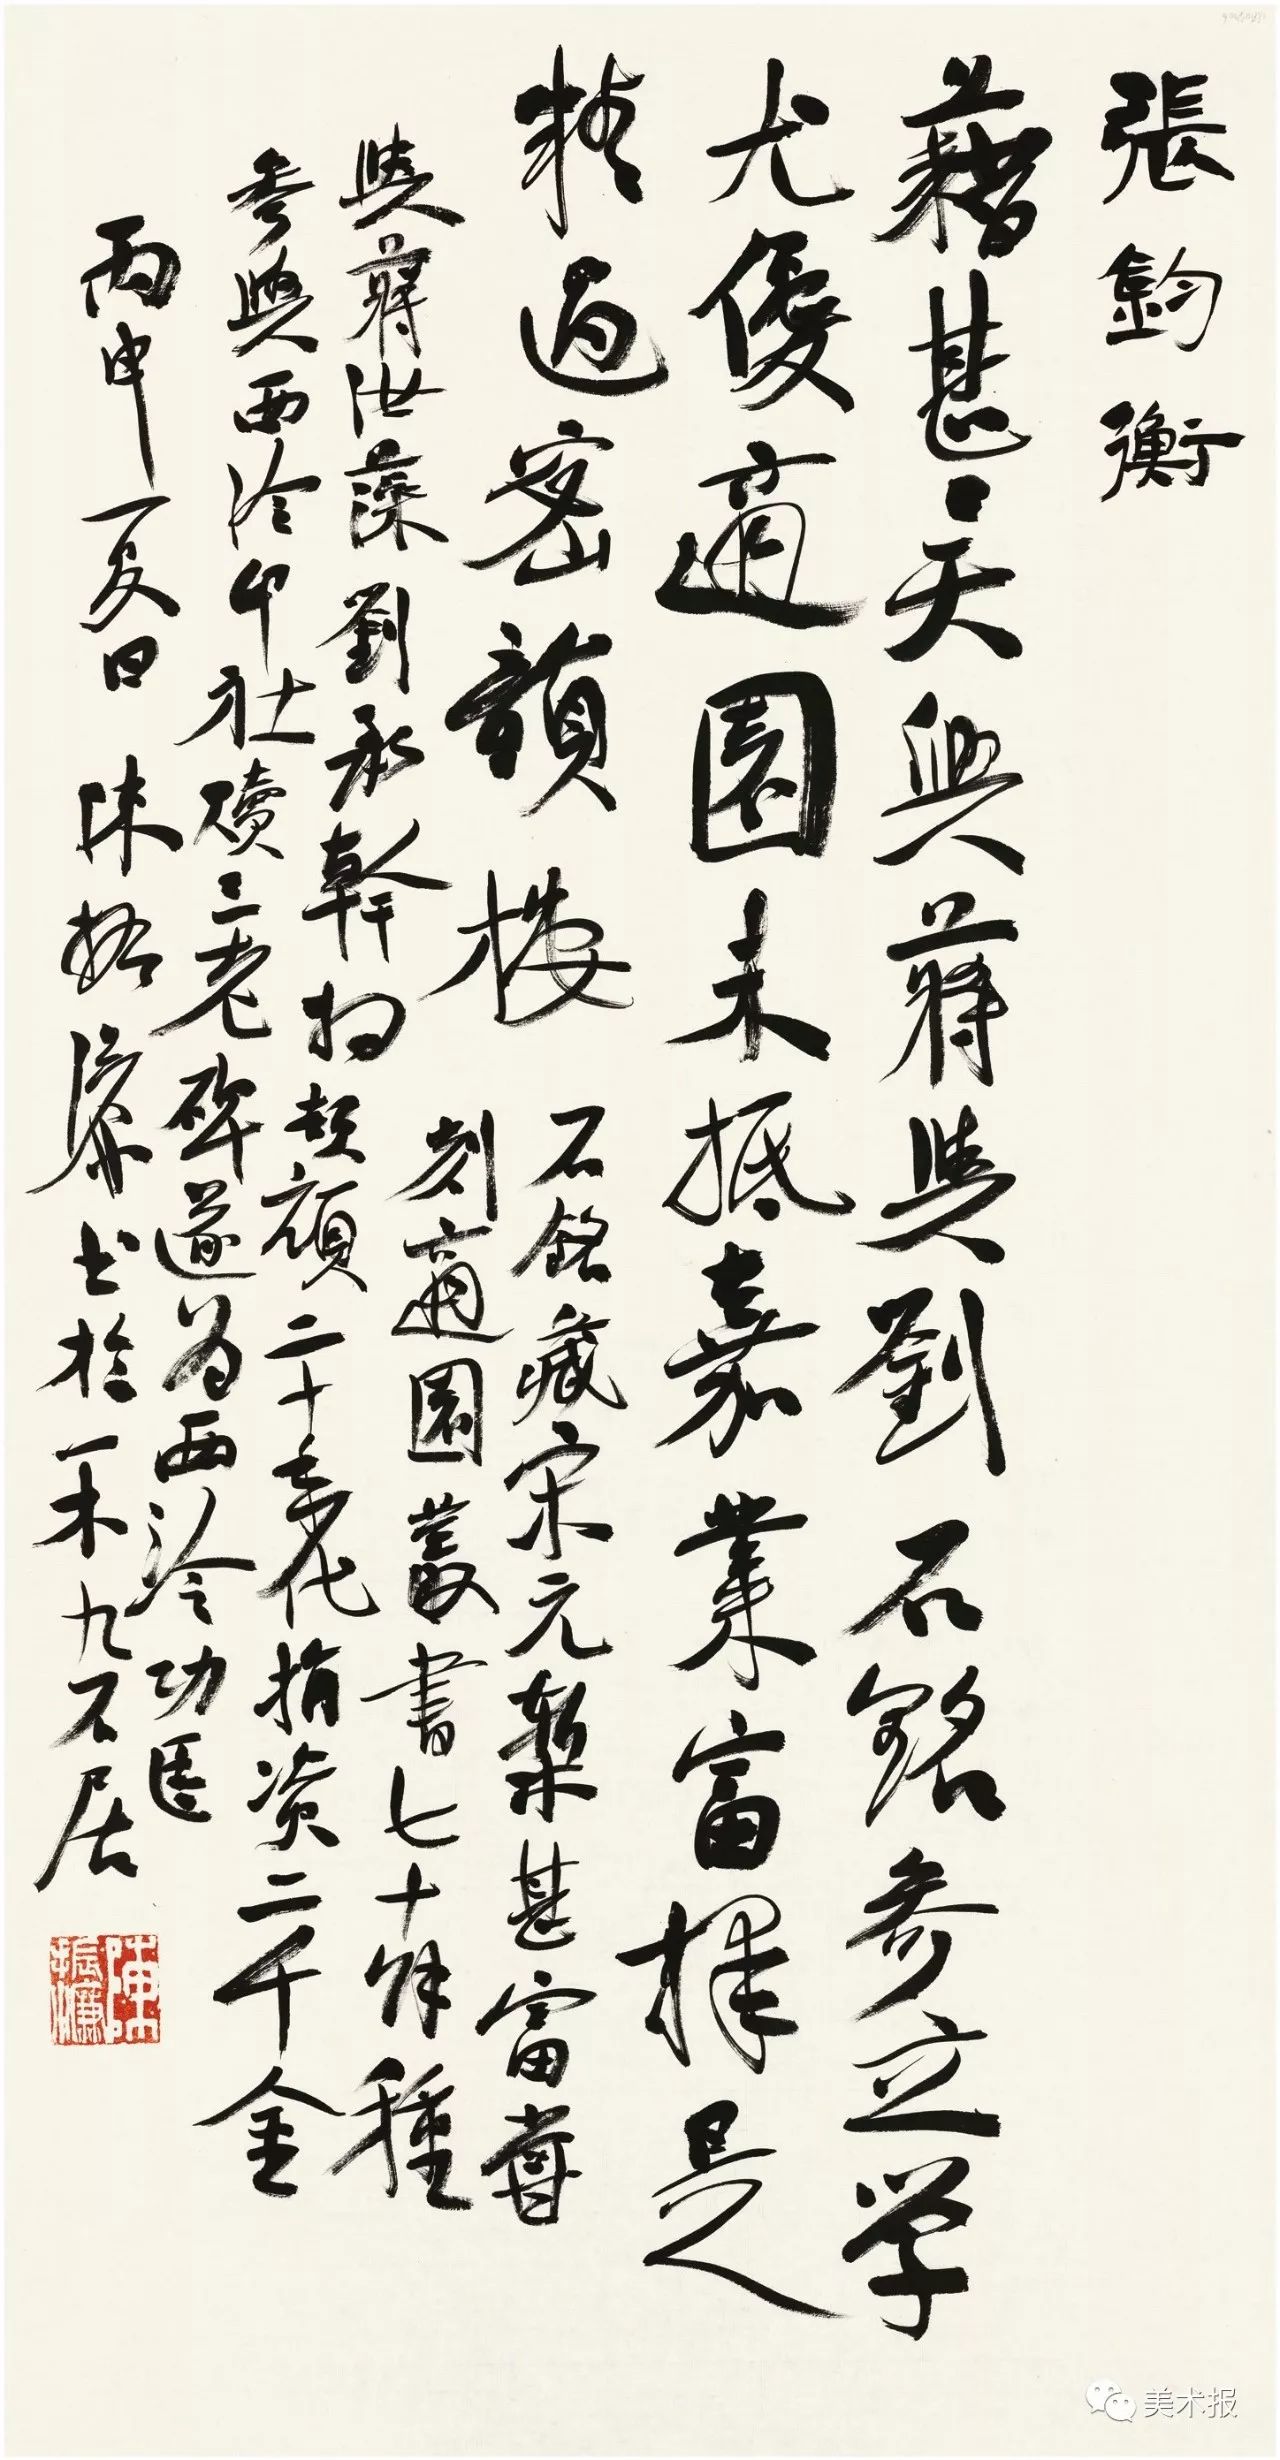 張鈞衡
藉甚天興蔣與劉石銘参立学
尤優適園未抵嘉業富擇是
精過密韻樓
石銘藏宋元槧甚富嘗
刻適園叢書七十餘種
與蔣汝藻劉承幹相頡頏二十年代捐资二千金
参與西泠印社贖三老碑遂为西泠功臣
丙申夏日陳振濂书於一木九石居
陳振濂
美术报